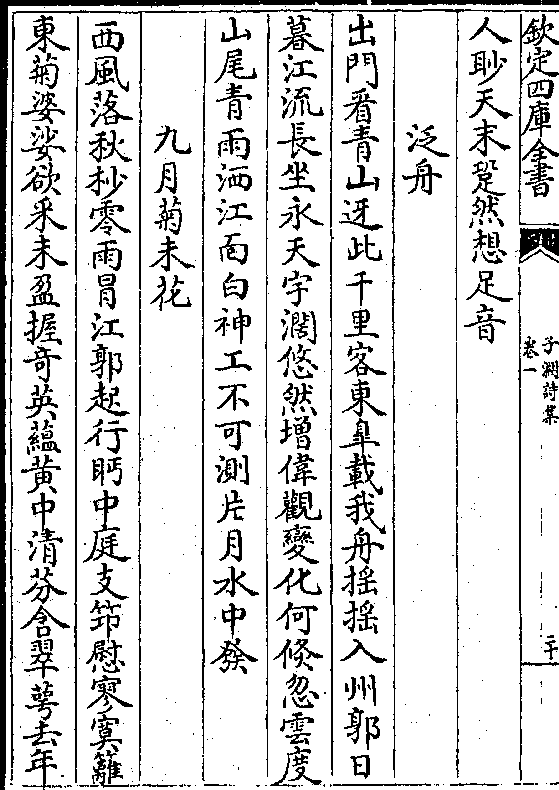 欽定四庫全書
子淵詩集
卷一
二十
人眇天末跫然想足音
泛舟
出門看青山迓此千里客東皐載我舟揺揺入州郭日
暮江流長坐永天宇濶悠然增偉觀變化何倐忽雲度
山尾青雨洒江面白神工不可測片月水中發
九月菊未花
西風落秋杪零雨冐江郭起行眄中庭支筇慰寥寞籬
東菊婆娑欲采未盈握竒英蘊黄中清芬含翠萼去年